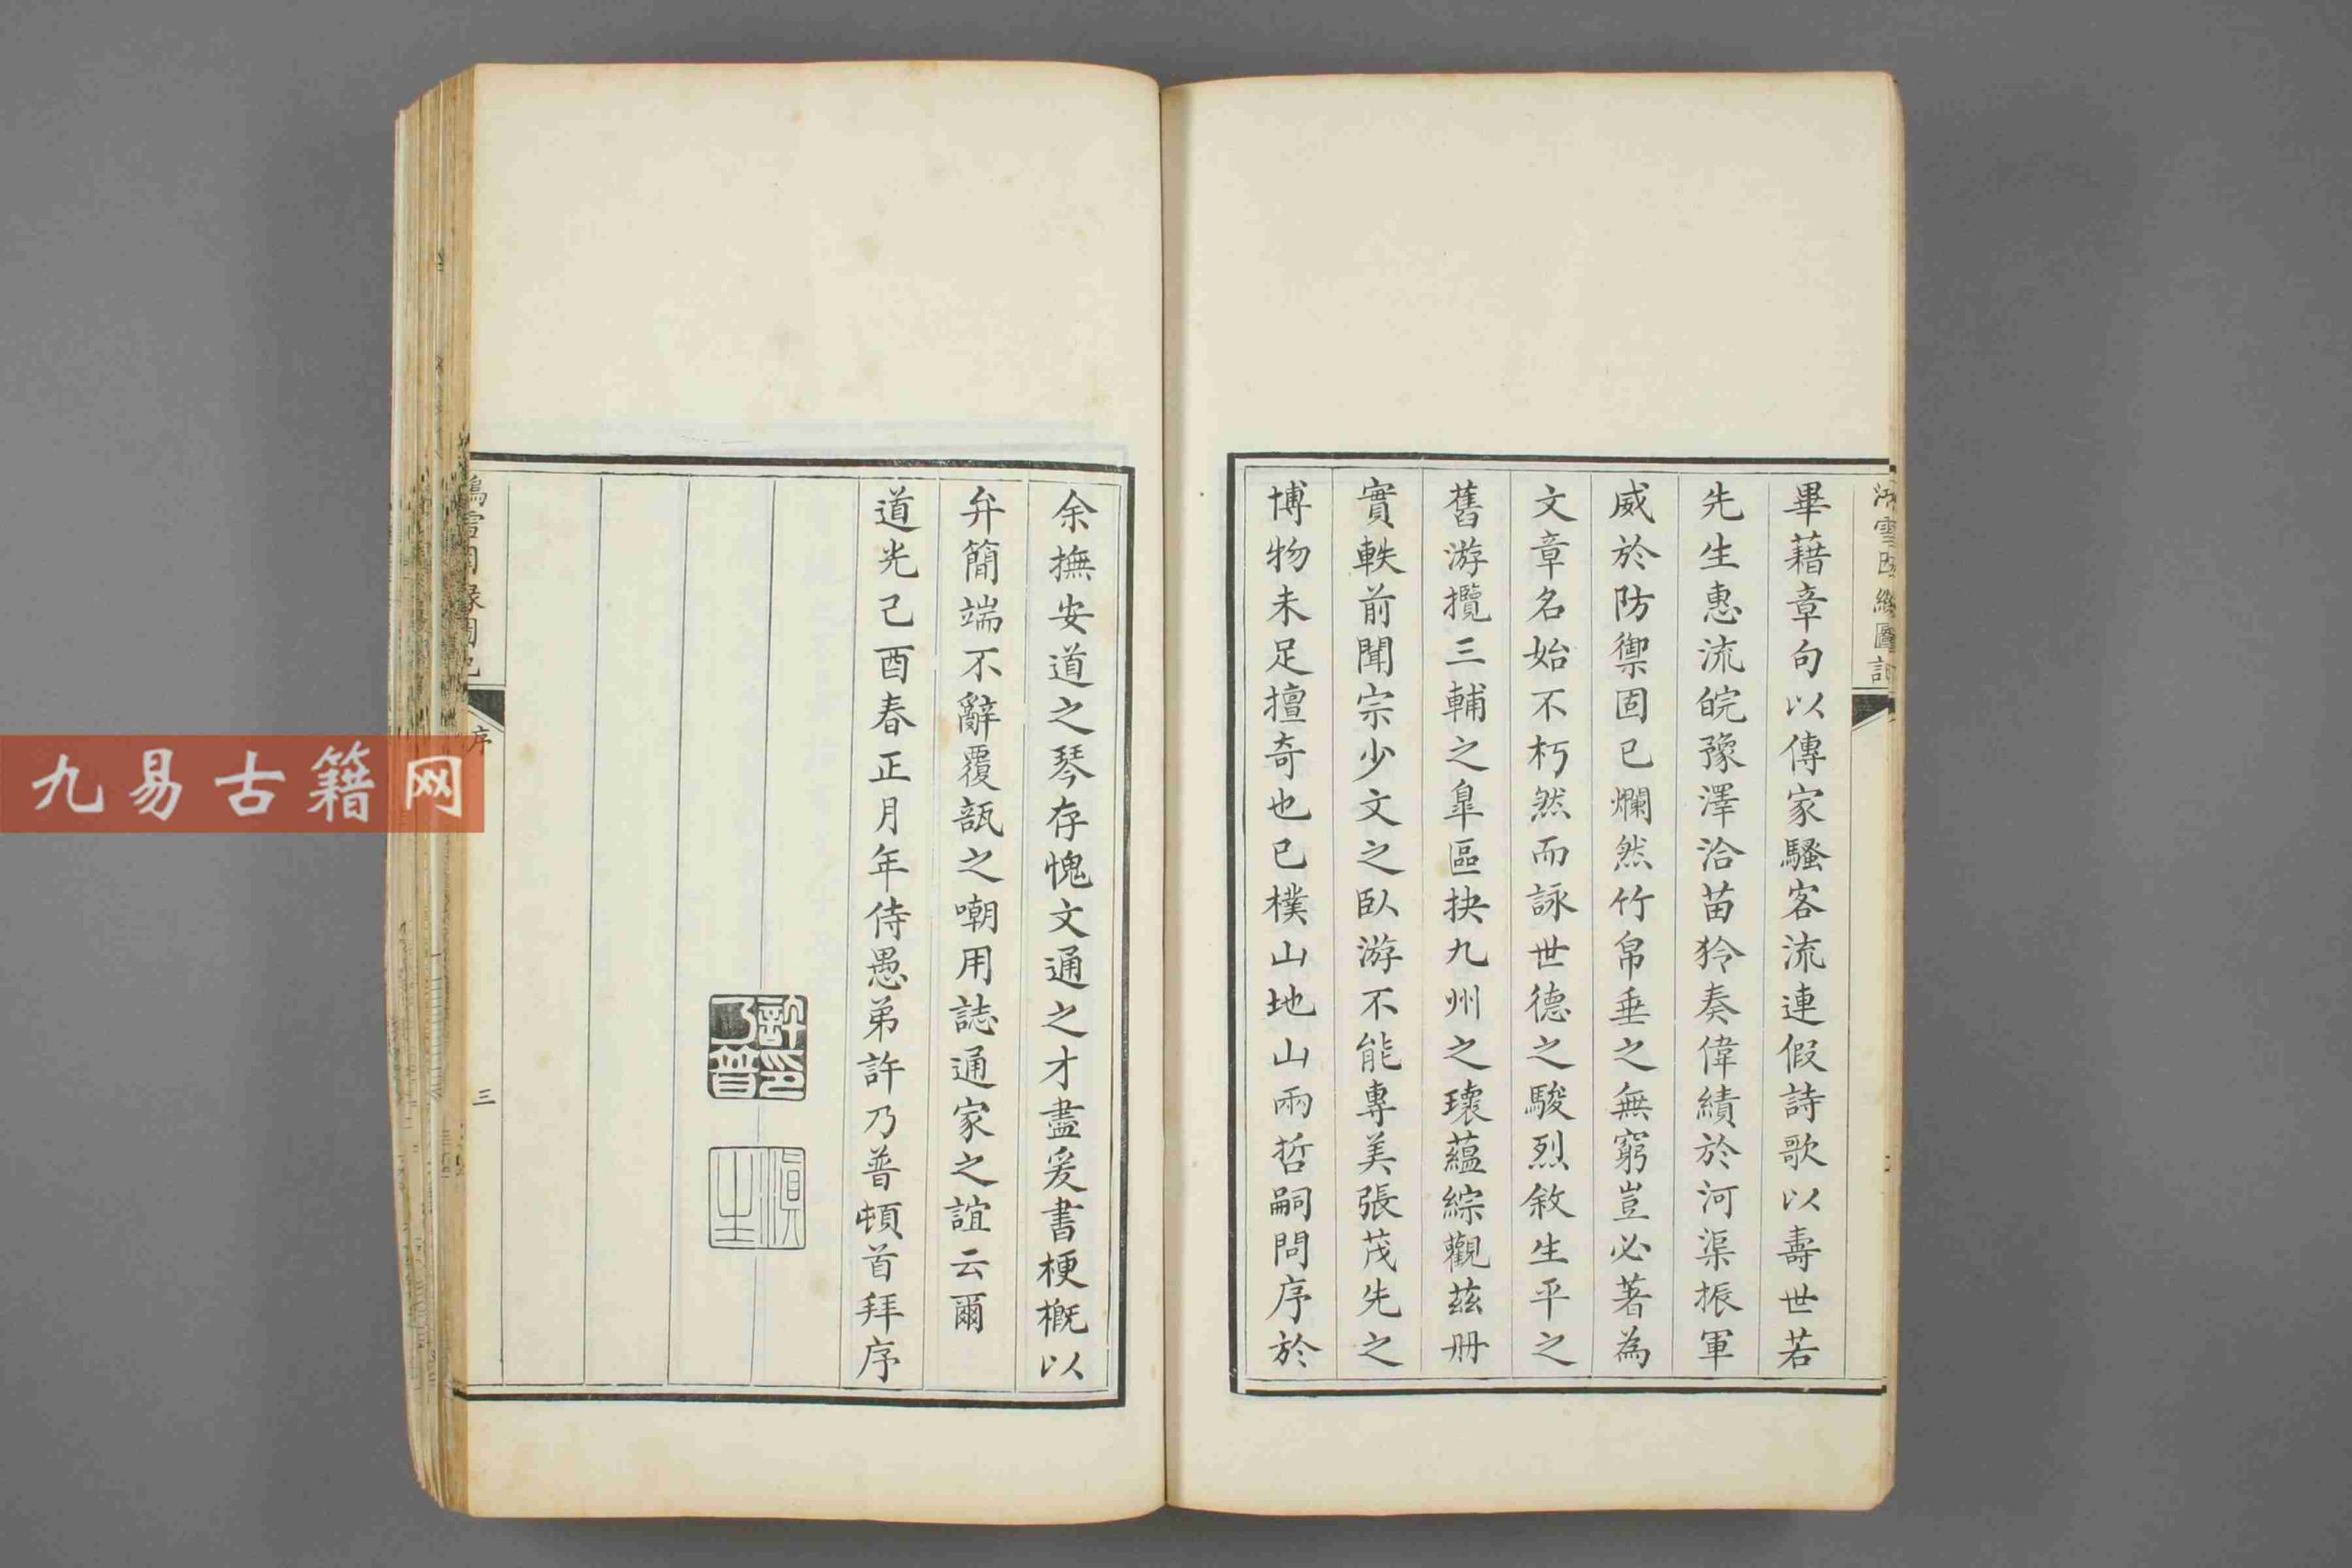 鴻雪因緣圖記
畢藉章句以傳家騷客流連假詩歌以壽世若
先生惠流皖豫澤洽苗狑奏偉績於河渠振軍
威於防禦固已爛然竹帛垂之無窮豈必著為
文章名始不朽然而詠世德之駿烈敘生平之
舊游攬三輔之皐區抉九州之瓌蘊綜觀茲冊
實軼前聞宗少文之臥游不能專美張茂先之
博物未足擅奇也已樸山地山兩哲嗣問序於
余撫安道之琴存愧文通之才盡爰書梗概以
弁簡端不辭覆瓿之嘲用誌通家之誼云爾
道光己酉春正月年侍愚弟許乃普頓首拜序
許乃普印
滇生
鴻雪因緣圖記
序
三
九易古籍网